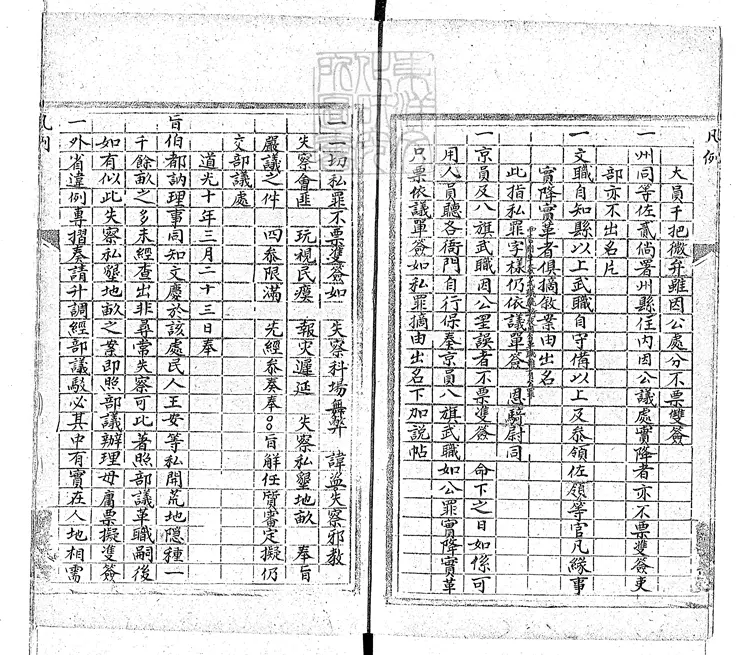 凡例
大員千把微弁雖因公處分不票雙簽
一州同等佐貳倘署州縣任內因公議處實降者亦不票雙簽吏
部亦不出名片
一文職自知縣以上武職自守備以上及參領佐領等官凡緣事
實降實革者俱摘敘案由出名
此指私罪字樣仍依議單簽 恩騎尉同
一京員及八旗武職因公罣誤者不票雙簽 命下之日如係可
用人員聽各衙門自行保奏京員八旗武職如公罪實降實革
只票依議單簽如私罪摘由出名下加說帖
一一切私罪不票雙簽如 失察科場舞弊 諱盜失察邪教
失察會匪 玩視民瘼 報災遲延 失察私墾地畝 奉旨
嚴議之件 四參限滿 先經參奏奉旨解任質審定擬仍
交部議處
道光十年三月二十三日奉
旨伯都訥理事同知文慶於該處民人王安等私開荒地隱種一
千餘畝之多未經查出非尋常失察可比著照部議革職嗣後
如有似此失察私墾地畝之案即照部議辦理毋庸票擬雙簽
一外省違例專摺奏請升調經部議駁必其中有實在人地相需
凡例